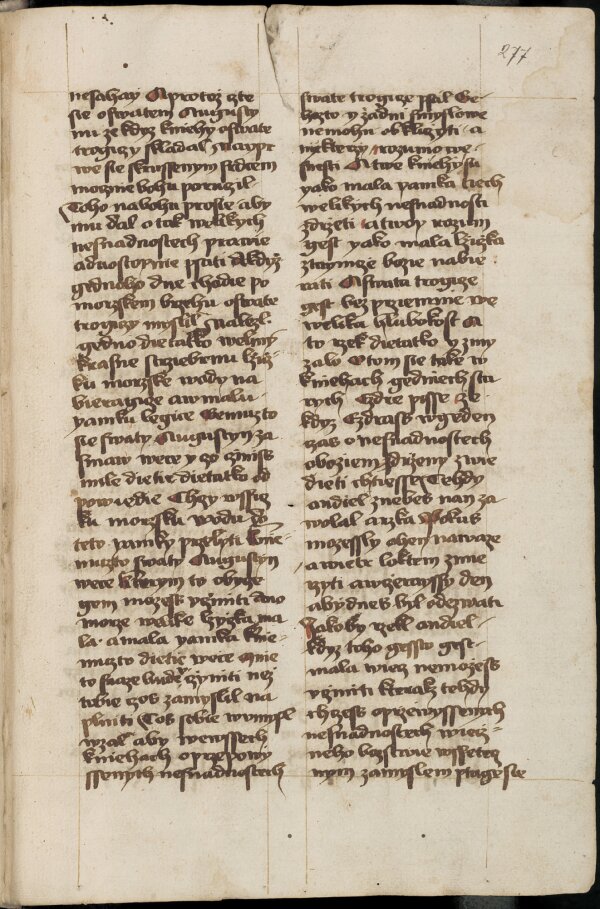 277
nesahay A protoz cte
sie o swatem Augusty
nu ze kdyz kniehy o swate
trogiczy skladal Nayprw
we sie skrussenym srdcem
mocznie bohu poruczil
Toho na bohu prosie aby
mu dal o tak welikych
nesnadnostech prawie
a dnostognie psati A kdyz
gednoho dne chodie po
morzskem brzehu o swate
trogiczy myslil Nalezl
gedno dietatko welmi
krasne strziebrnu lziz
ku morzske wody na
bieragicze a w malu
yamku legice Gemuzto
sie swaty Augustyn za
smaw wece y czo czinis
mile dietie dietatko od
powiedie Chczy wssiczk
ku morzsku wodu w
teto yamky przelyti kne
muzto swaty Augustyn
wece kterym to obycze
gem mozess vcziniti Ano
morze welike lzyzka ma
la a mala yamka kne
muzto dietie wece Mnie
to snaze bude cziniti nez
tobie czos zamyslil na
plniti Tos sobie w mysl
wzal aby we wssech
kniehach o przepowy
ssenych nesnadnostech
swate trogicze psal Ge
hozto y zadni smyslowe
nemohu obkliczyti a
niekterzy rozumowe
snesti A twe kniehy su
yako mala yamka tiech
welikych nesnadnosti
zdrzeti a twoy rozum
gest yako mala lzizka
ztaymcze bozie nabie
rati A swata trogicze
gest bezpriemnie we
welika hlubokost A
to rzek dietatko y zmy
zalo O tom sie take w
kniehach gedniech sta
rych Ezdre pisse ze
kdyz Ezdrass w geden
czas o nesnadnostech
obozienim drzeny zwie
dieti chtiesse Tehdy
andiel z nebes nan za
wolal a rzka Pokus
mozessly ohen nawaze
a wietr loktem zmie
rzyti a wczeraysy den
aby dnes byl odezwati
Jakoby rzekl andiel
kdyz toho gessto gest
mala wiecz nemozess
vcziniti kterak tehdy
chczess o przewyssenych
nesnadnostech wiecz
neho bozstwie wssetecz
nym zamyslem ptage sie